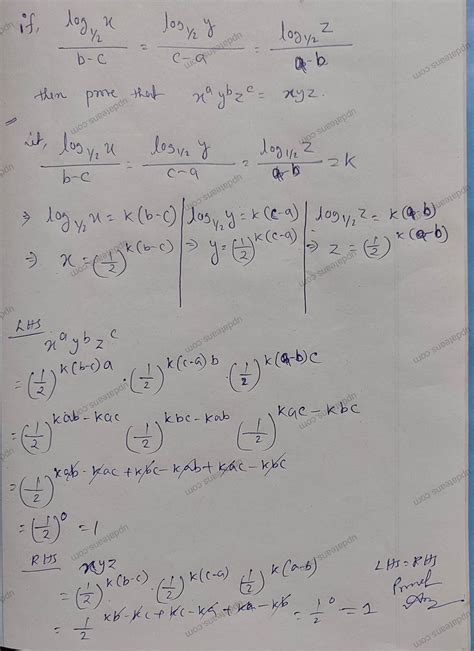 if, log₁/₂ x / b-c = log₁/₂ y / c-a = log₁/₂ z / a-b
then prove that xᵃ yᵇ zᶜ = xyz.
let, log₁/₂ x / b-c = log₁/₂ y / c-a = log₁/₂ z / a-b = k
⇒ log₁/₂ x = k(b-c) | log₁/₂ y = k(c-a) | log₁/₂ z = k(a-b)
⇒ x = (1/2)^k(b-c) | ⇒ y = (1/2)^k(c-a) | ⇒ z = (1/2)^k(a-b)
LHS xᵃ yᵇ zᶜ
= (1/2)^k(b-c)a · (1/2)^k(c-a)b · (1/2)^k(a-b)c
= (1/2)^kab-kac (1/2)^kbc-kab (1/2)^kac-kbc
= (1/2)^kab-kac+kbc-kab+kac-kbc
= (1/2)^0 = 1
RHS xyz
= (1/2)^k(b-c) · (1/2)^k(c-a) (1/2)^k(a-b)
= 1/2^kb-kc+kc-ka+ka-kb = 1/2^0 = 1
LHS = RHS
Proved
updateans.com